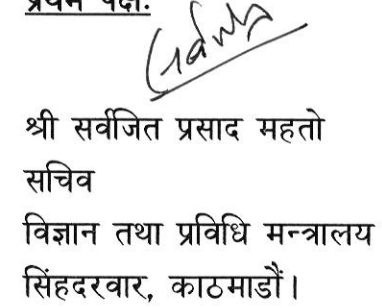 प्रथम पक्षः
श्री सर्वजित प्रसाद महतो
सचिव
विज्ञान तथा प्रविधि मन्त्रालय
सिंहदरवार, काठमाडौं।